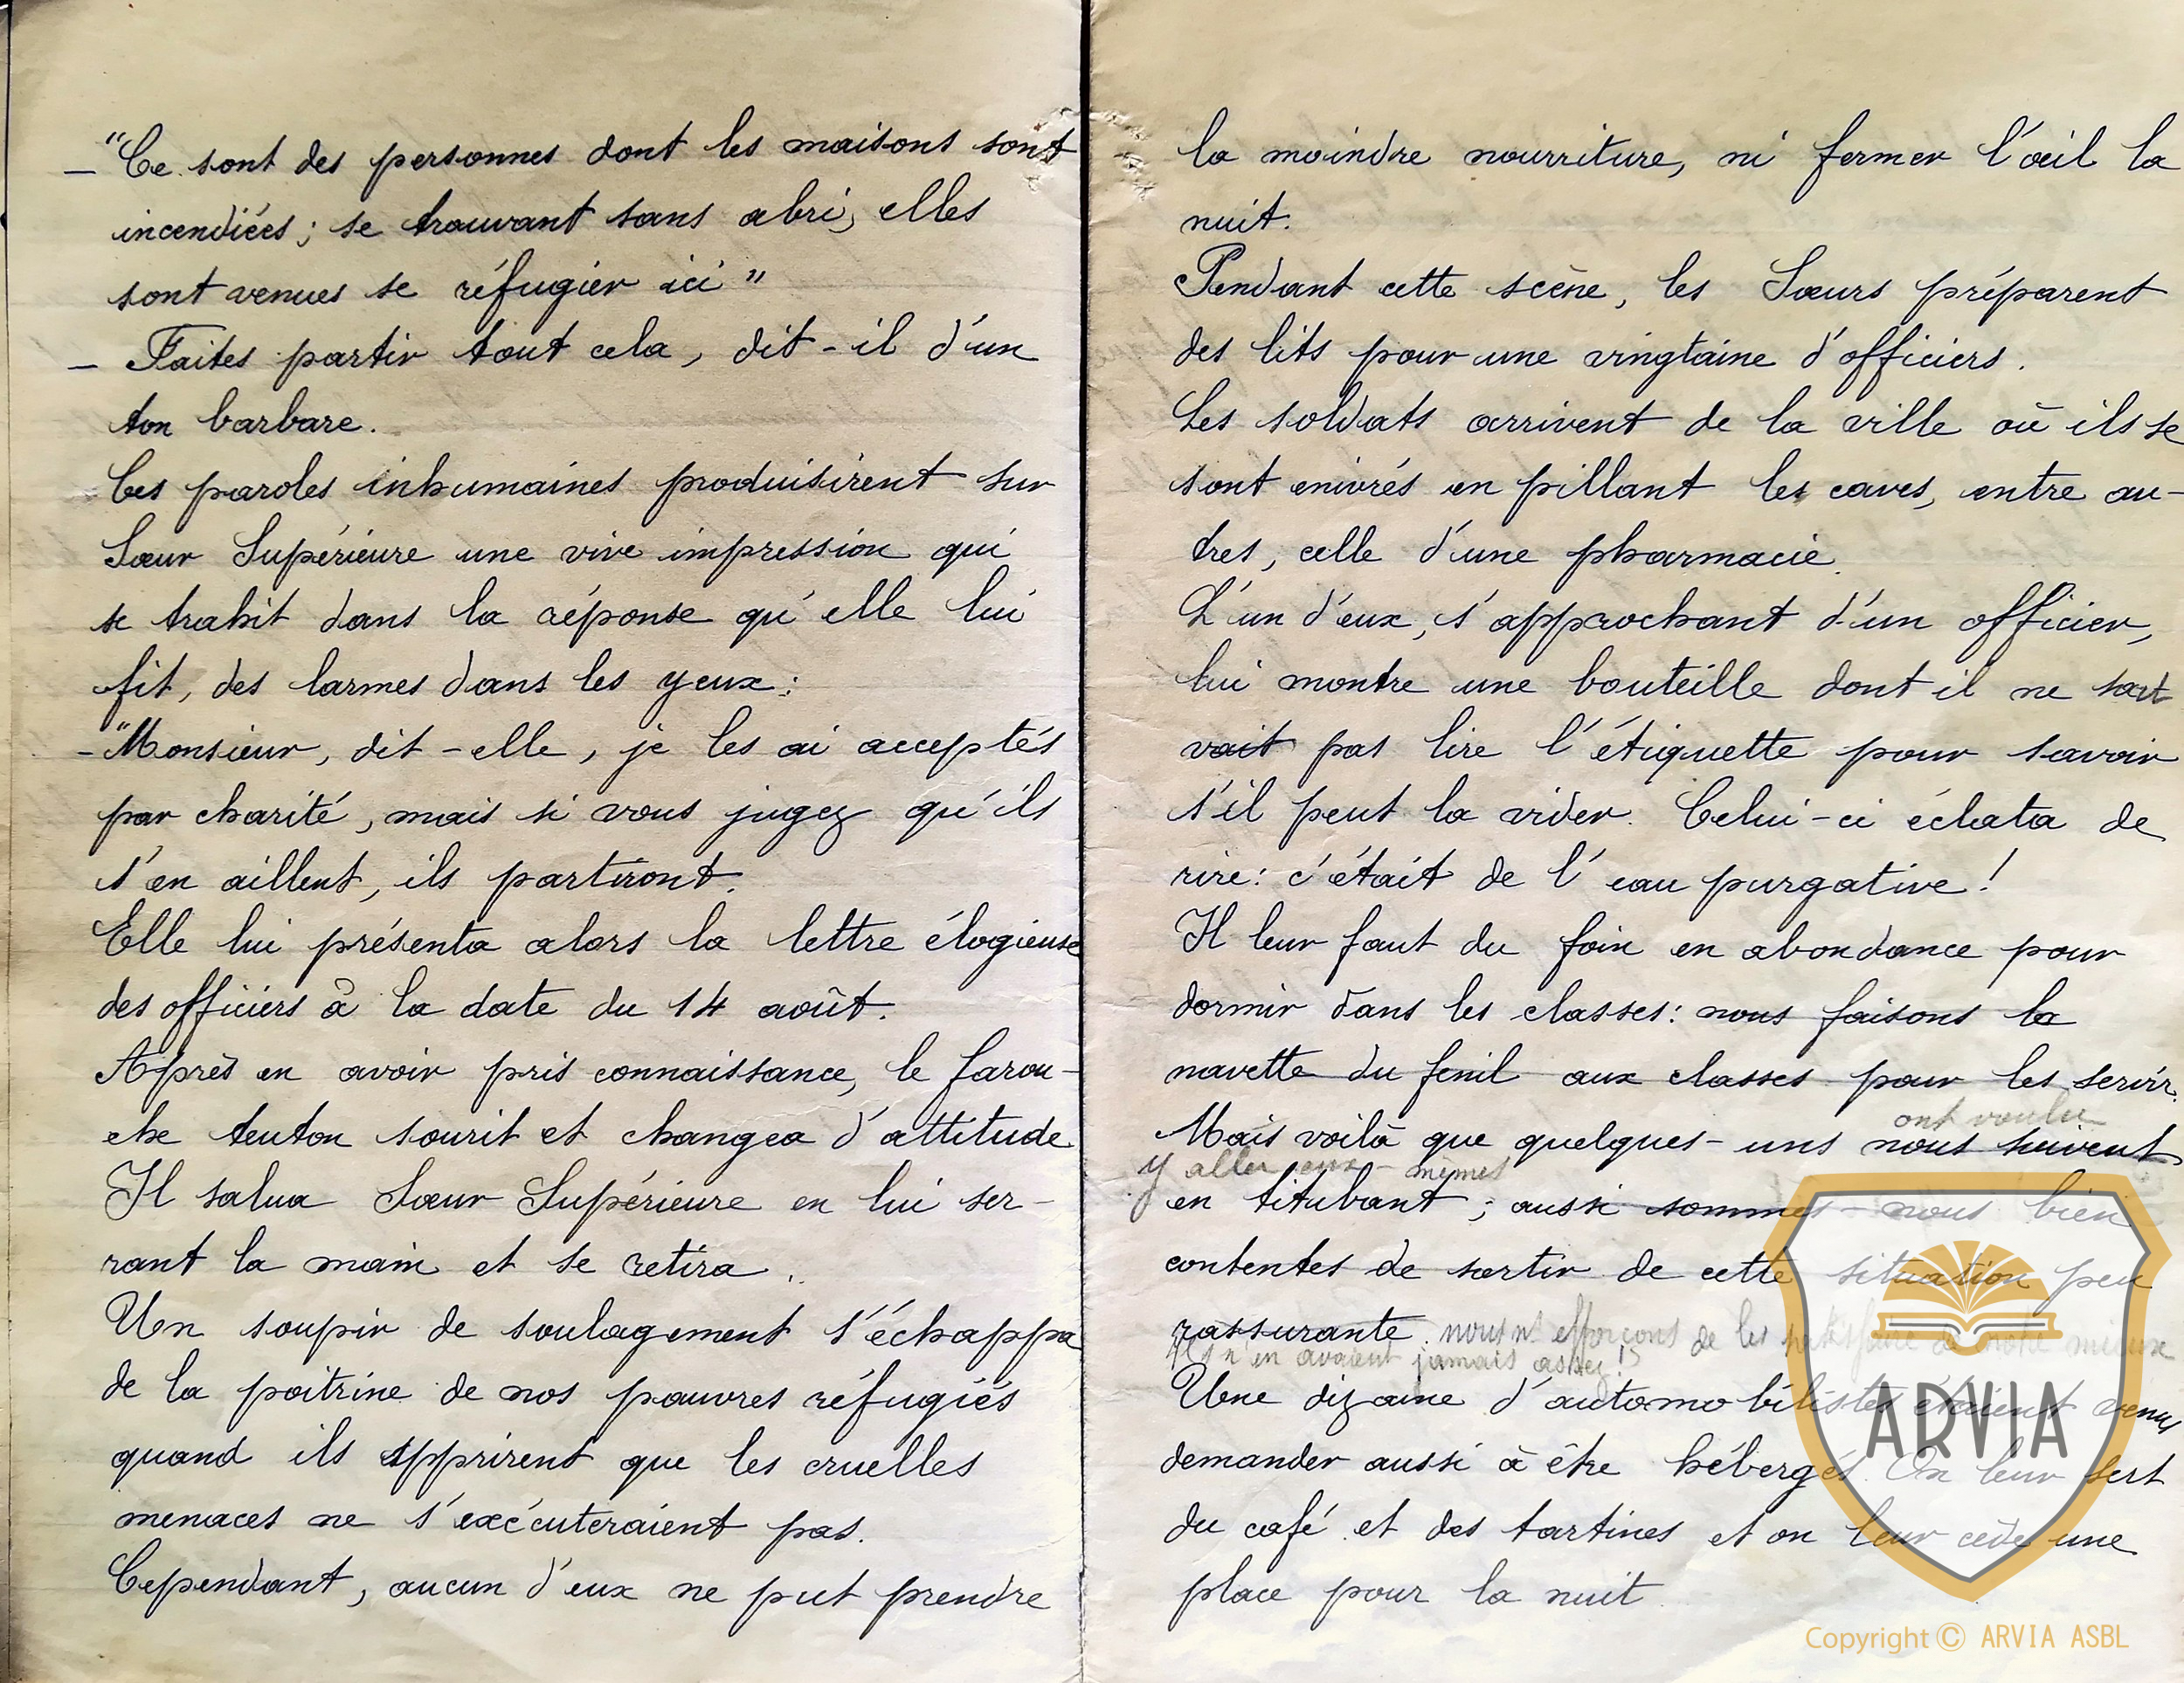 – "Ce sont des personnes dont les maisons sont
incendiées ; se trouvant sans abri, elles
sont venues se réfugier ici "
– Faites partir tout cela, dit-il d'un
ton barbare.
Ces paroles inhumaines produisirent sur
Sœur Supérieure une vive impression qui
se trahit dans la réponse qu'elle lui
fit, des larmes dans les yeux :
– "Monsieur, dit-elle, je les ai acceptés
par charité, mais si vous jugez qu'ils
s'en aillent, ils partiront.
Elle lui présenta alors la lettre élogieuse
des officiers à la date du 14 août.
Après en avoir pris connaissance, le farou-
che teuton sourit et changea d'attitude.
Il salua Sœur Supérieure en lui ser-
rant la main et se retira.
Un soupir de soulagement s'échappa
de la poitrine de nos pauvres réfugiés
quand ils apprirent que les cruelles
menaces ne s'exécuteraient pas.
Cependant, aucun d'eux ne put prendre
la moindre nourriture, ni fermer l'œil la
nuit.
Pendant cette scène, les Sœurs préparent
des lits pour une vingtaine d'officiers.
Les soldats arrivent de la ville où ils se
sont enivrés en pillant les caves, entre au-
tres, celle d'une pharmacie.
L'un d'eux, s'approchant d'un officier,
lui montre une bouteille dont il ne
vait pas lire l'étiquette pour savoir
s'il peut la vider. Celui-ci éclata de
rire : c'était de l'eau purgative !
Il leur faut du foin en abondance pour
dormir dans les classes : nous faisons la
navette du fenil aux classes pour les servir.
ont voulu
Mais voilà que quelques-uns nous suivent
y aller eux-mêmes
en titubant ; aussi sommes-nous bien
contentes de sortir de cette situation peu
rassurante. nous n. efforçons de les satisfaire de notre mieux
Ils n'en avaient jamais assez !
Une dizaine d'automobilistes étaient venus
demander aussi à être hébergés. On leur sert
du café et des tartines et on leur cède une
place pour la nuit.
ARVIA
Copyright © ARVIA ASBL